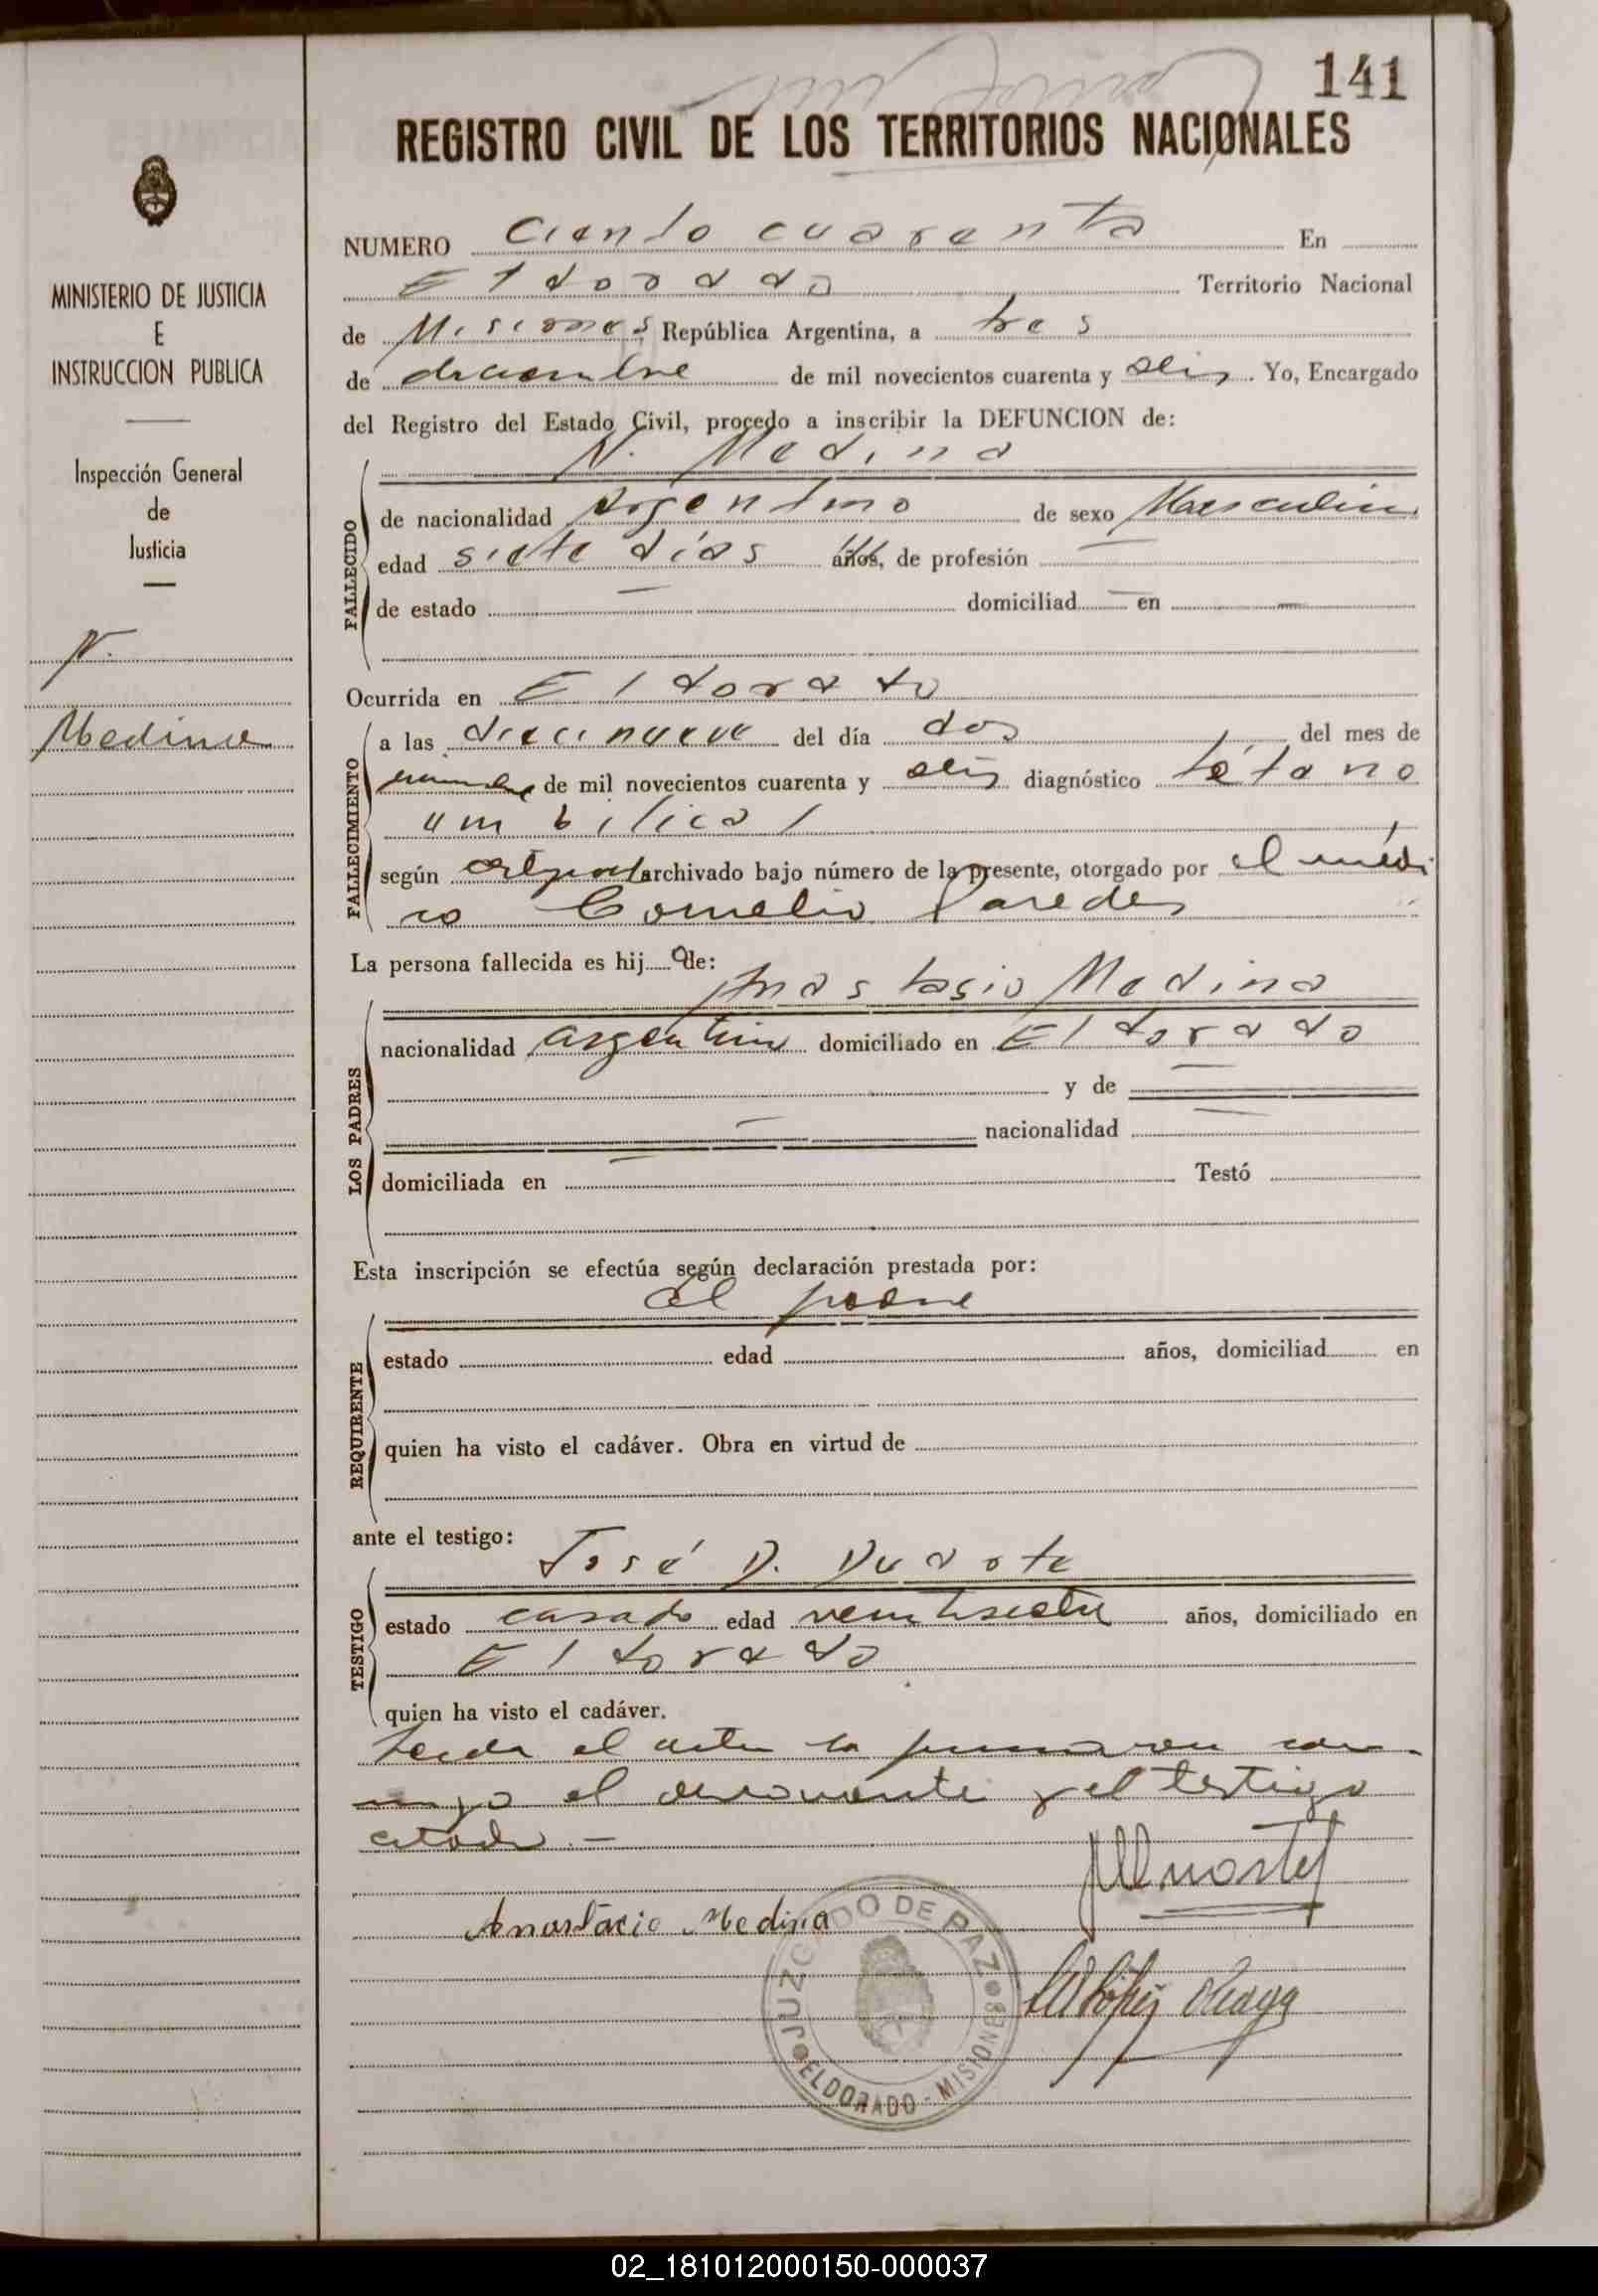 141
REGISTRO CIVIL DE LOS TERRITORIOS NACIONALES
MINISTERIO DE JUSTICIA
E
INSTRUCCION PUBLICA
Inspección General
de
Justicia
N.
Medina
NUMERO Ciento cuarenta En
Eldorado Territorio Nacional
de Misiones República Argentina, a tres
de diciembre de mil novecientos cuarenta y seis. Yo, Encargado
del Registro del Estado Civil, procedo a inscribir la DEFUNCION de:
N. Medina
FALLECIDO
de nacionalidad Argentino de sexo Masculino
edad siete días años, de profesión —
de estado — domiciliad — en —
Ocurrida en Eldorado
FALLECIMIENTO
a las diecinueve del día dos del mes de
de mil novecientos cuarenta y seis diagnóstico tétano
umbilical
según archivado bajo número de la presente, otorgado por el médi
co Cornelio Paredes
La persona fallecida es hijo de:
Anastasio Medina
LOS PADRES
nacionalidad argentino domiciliado en Eldorado
y de —
— nacionalidad —
domiciliada en — Testó
Esta inscripción se efectúa según declaración prestada por:
el padre
REQUIRENTE
estado edad años, domiciliad en
quien ha visto el cadáver. Obra en virtud de
ante el testigo:
José D. Duarte
TESTIGO
estado casado edad veintisiete años, domiciliado en
Eldorado
quien ha visto el cadáver.
Leida el acta la firmaron con-
migo el denunciante y el testigo
citado.—
Anastacio Medina
JUZGADO DE PAZ
ELDORADO - MISIONES
02_181012000150-000037